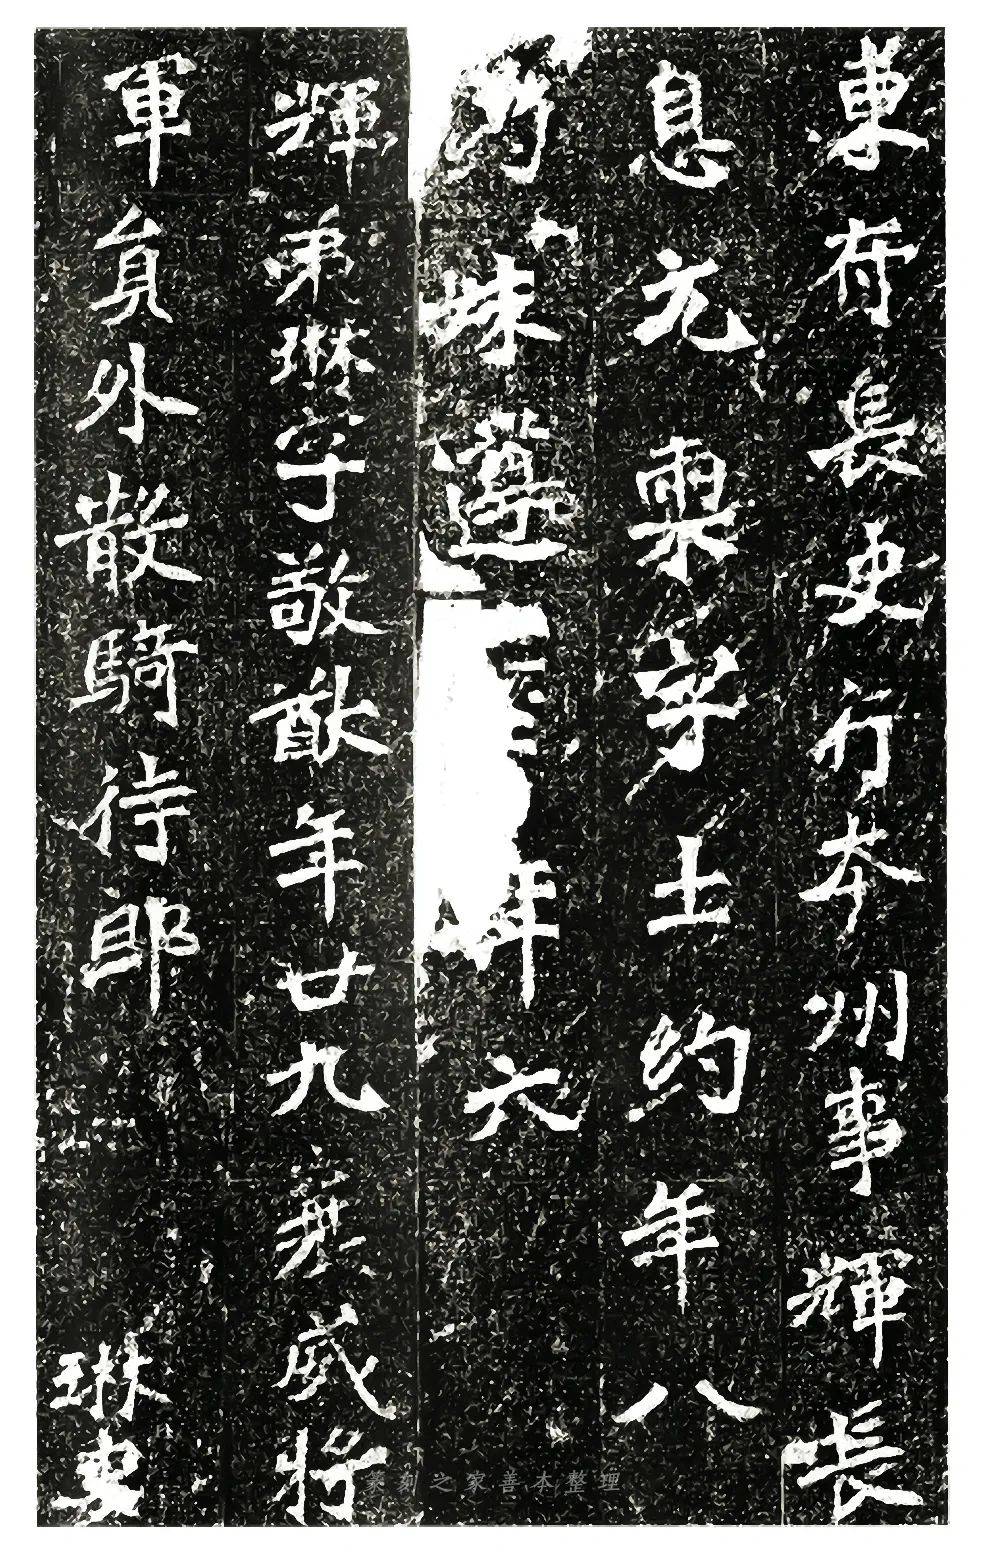 車府長史行本州事輝長
息元粟字土約年八
約妹遵年六
輝弟琳字敬猷年廿九寇威將
軍員外散騎侍郎琳妻
篆刻之家善本整理